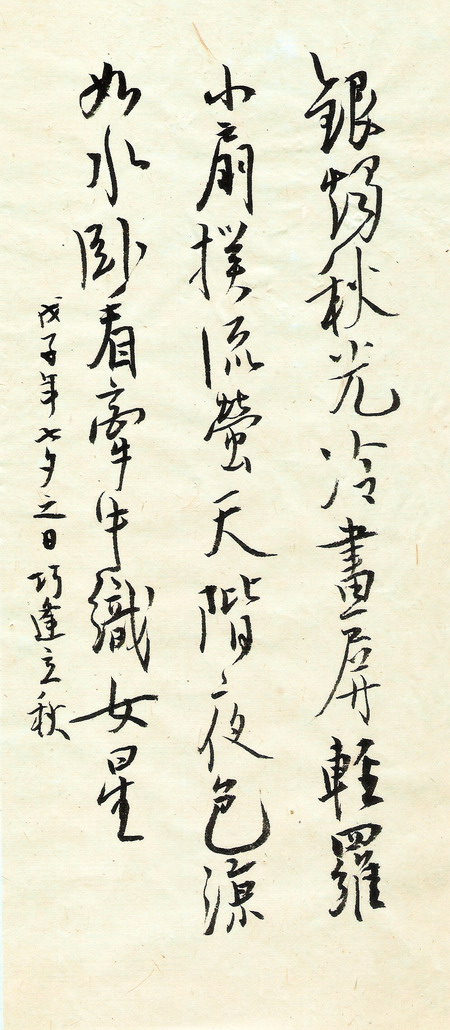 銀燭秋光冷畫屏輕羅
小扇撲流螢天階夜色涼
如水卧看牽牛織女星
戊子年七夕之日巧逢立秋